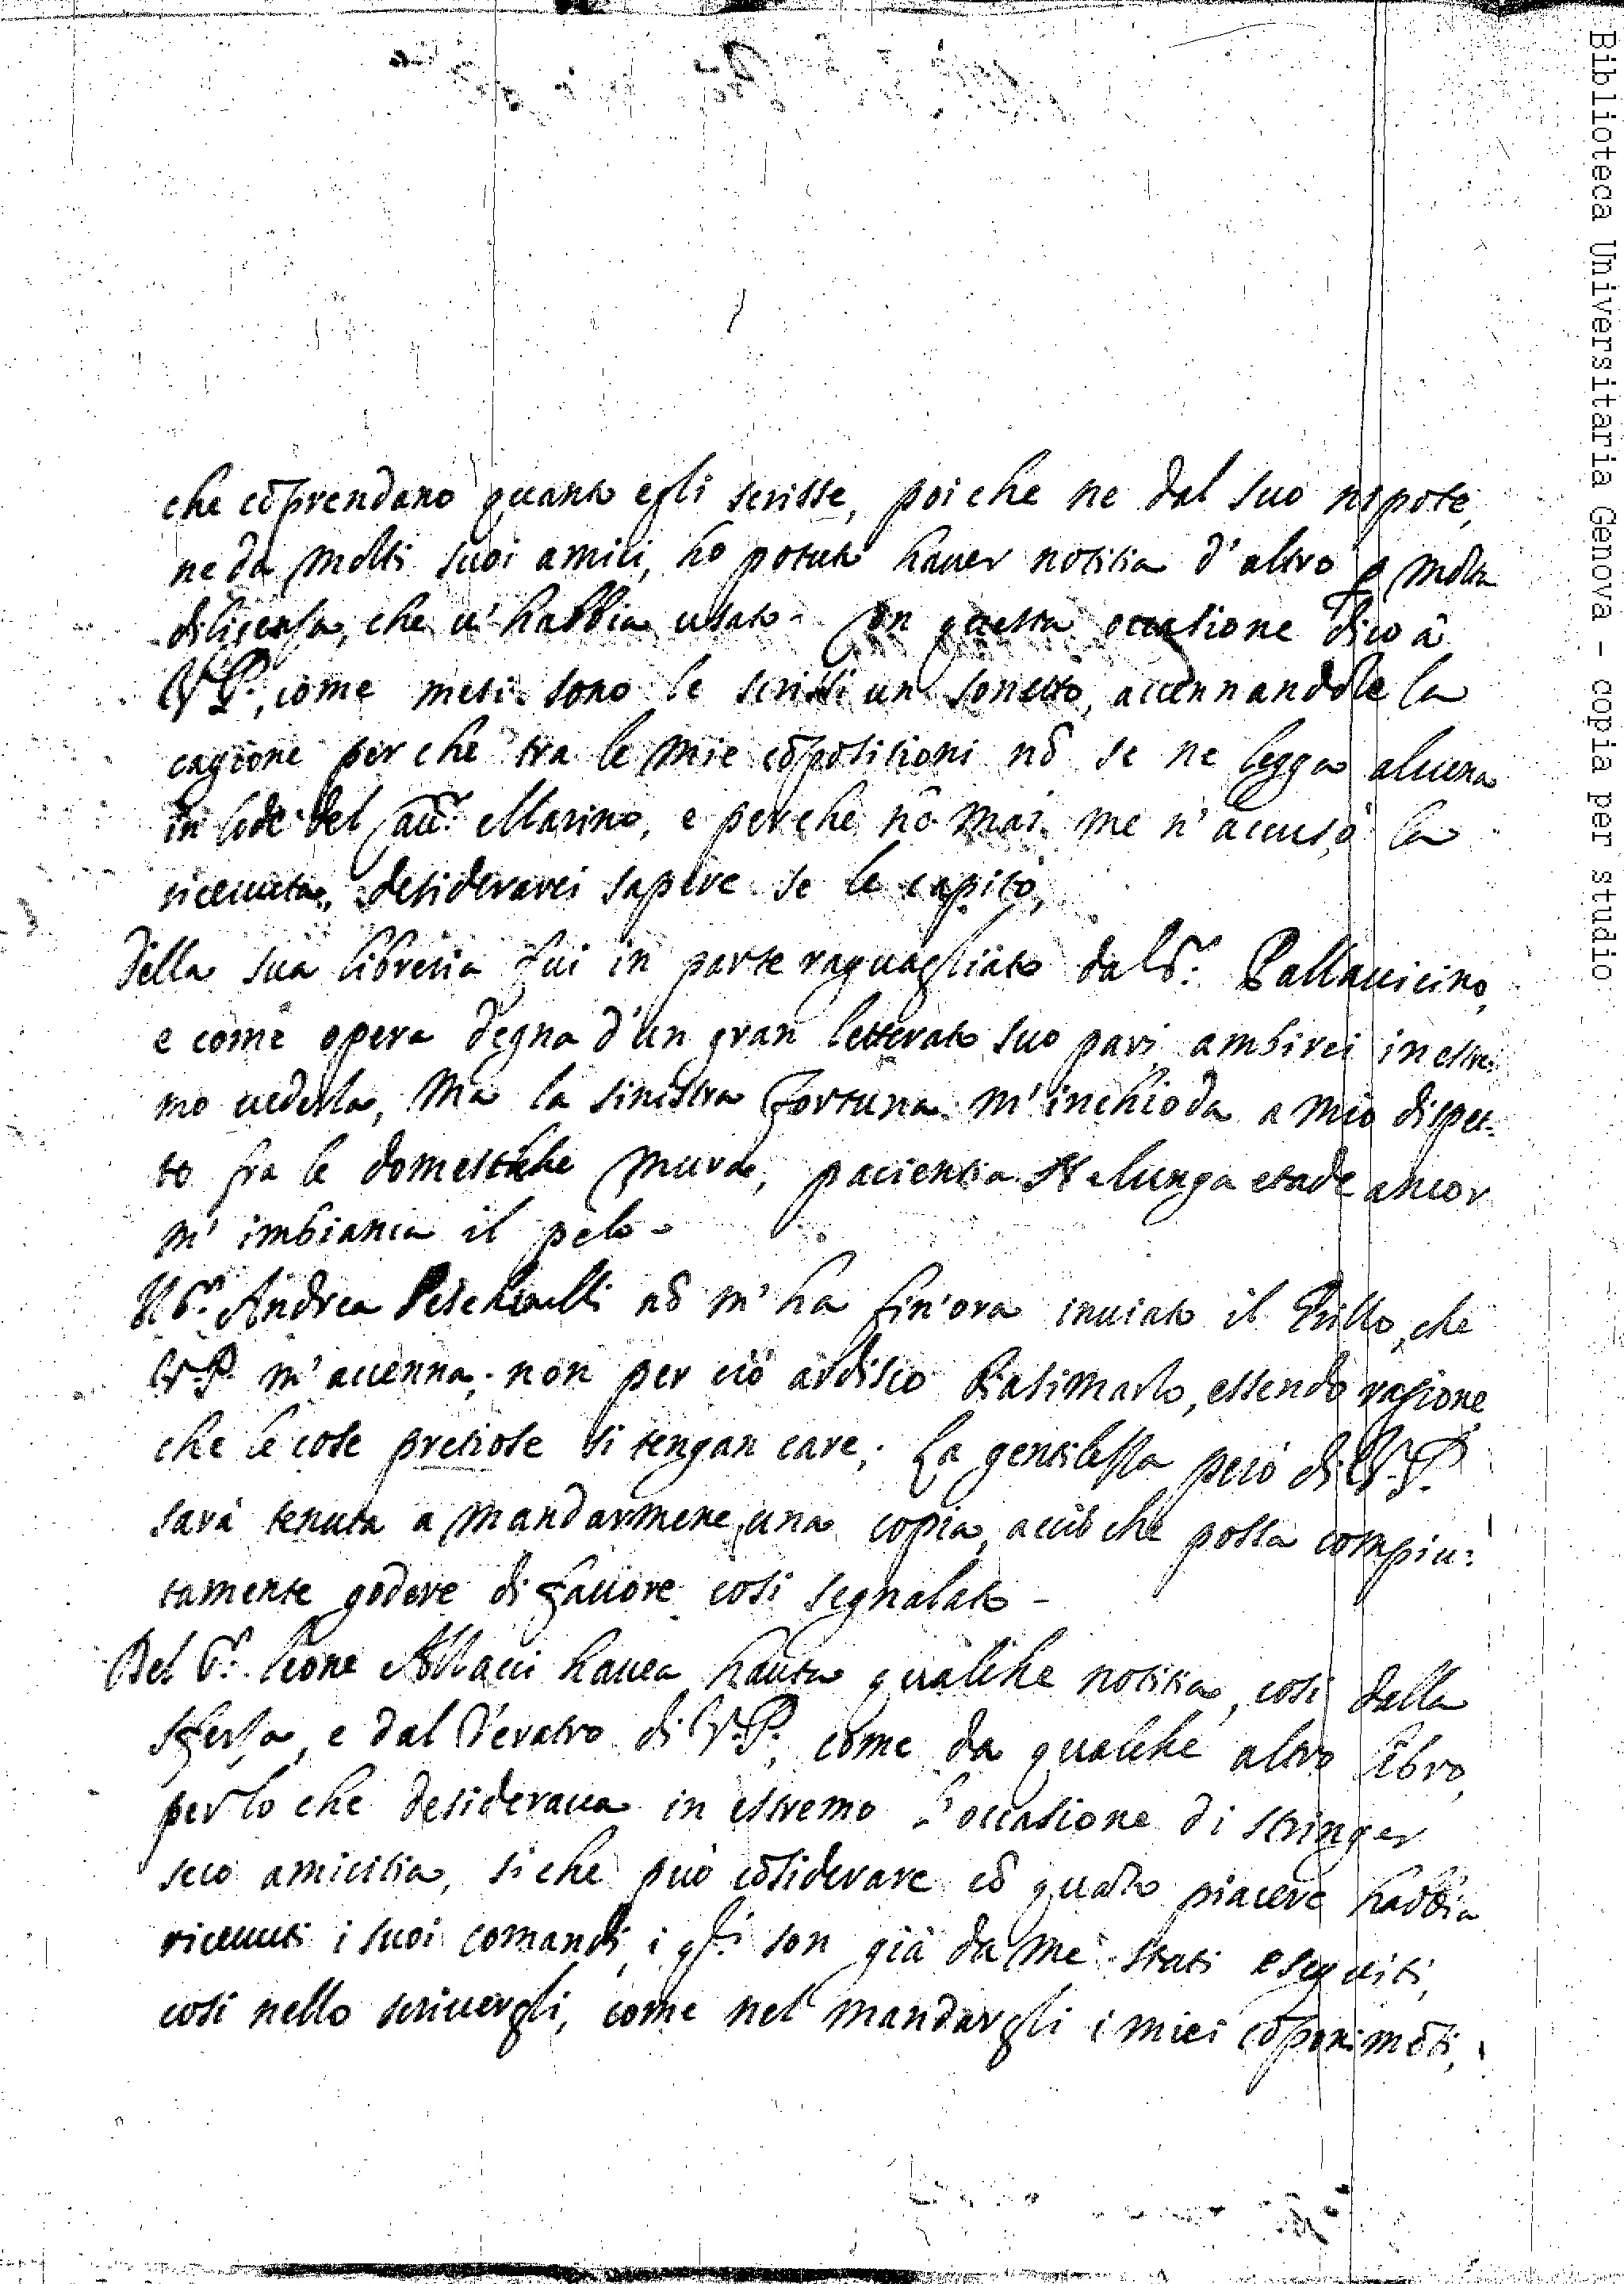 che cõprendano quanto egli scrisse, poi che ne dal suo nipote,
ne da molti suoi amici, ho potuto hauer notitia d'altro p molta
diligenza, che u'habbia usato. Con questa occasione dico à
V.P., come mesi sono le scrissi un sonetto, accennandole la
cagione per che tra le mie cõpositioni nõ se ne legga alcuna
in lode del Cau.r Marino, e perche nõ mai me n'accusò la
riceuuta, desiderarei sapere se le capitò,
Della sua libreria fui in parte raguagliato dal S.r Pallauicino,
e come opera degna d'un gran letterato suo pari ambirei in estre:
mo uederla, ma la sinistra fortuna m'inchioda a mio dispet:
to fra le domestiche mura, pacienza. Ne lunga etade ancor
m' imbianca il pelo.
Il S.r Andrea nõ m'ha fin'ora inuiato il Grillo, che
V.P. m'accenna; non per ciò ardisco biasimarlo, essendo ragione,
che le cose pretiose si tengan care; La gentilezza però di V.P.
sarà tenuta a mandarmene una copia, acciò che possa compiu:
tamente godere di fauore così segnalato.
Del S.r Leone Allacci hauea hauuta qualche notitia, così dalla
sferza, e dal Teratro di V.P., come da qualche altro libro,
perlo che desideraua in estremo l'occasione di stringer
seco amicitia, si che può cõsiderare cõ quãto piacere habbia
riceuuti i suoi comandi, i q.li son già da me stati eseguiti,
così nello scriuergli, come nel mandargli i miei cõponimẽti,
Biblioteca Universitaria Genova - copia per studio